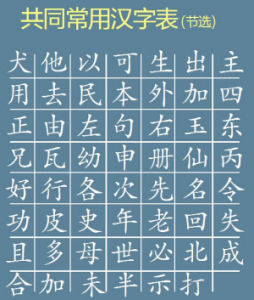 共同常用汉字表(节选)
犬他以可生出主
用去民本外加四
正由左句右玉东
兄瓦幼申册仙丙
好行各次先名令
功皮史年老回失
且多母世必北成
合加未半示打